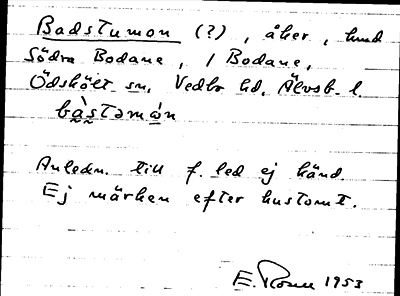 Badstumon (?), åker, hmd
Södra Bodane, / Bodane,
Ödskölt sn, Vedbo hd, Älvsb. l.
bàstəmán
Anledn. till f. led ej känd.
Ej märken efter hustomt.
E. 1953